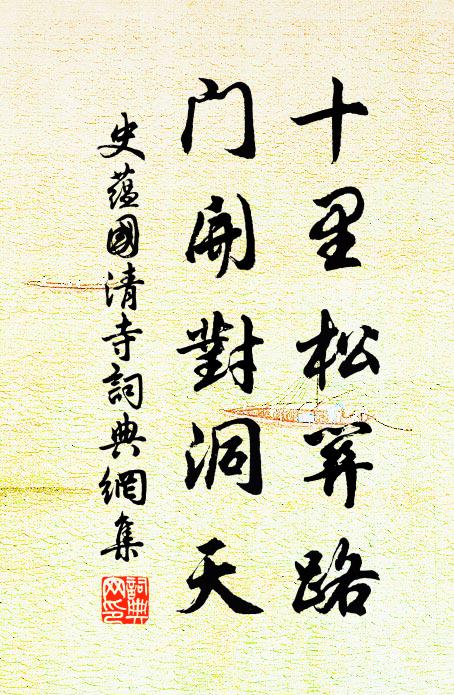 十里松關路
門開對洞天
史蘊國清寺詞典網集
詞典
网印